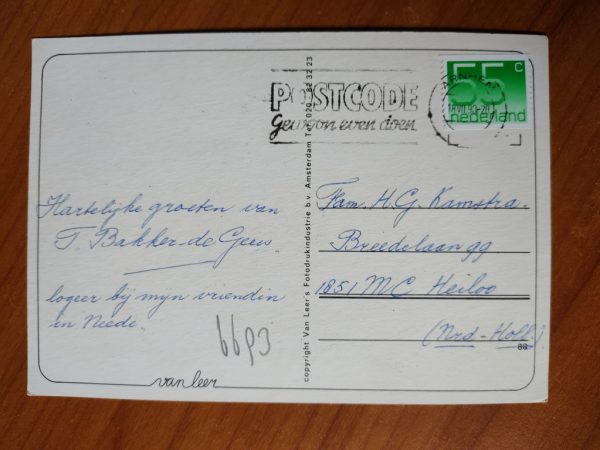 POSTCODE
Gewoon even doen
ARNHEM
55 c
nederland
Hartelijke groeten van
T. Bakker-de Geus
logeer bij mijn vriendin
in Neede.
6693
van leer
copyright Van Leer's Fotodrukindustrie b.v. Amsterdam Tel. 020 - 82 32 23
Fam. H.G. Kamstra.
Breedelaan 99
1851 MC Heiloo
(Nrd-Holl).